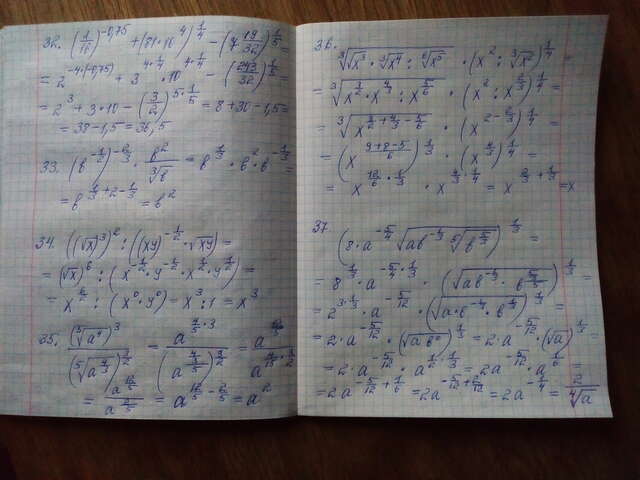 32. (1/16)^{-0,75} + (81·10^4)^{1/4} - (7 19/32)^{1/5} =
= 2^{-4·(-0,75)} + 3^{4·1/4}·10^{4·1/4} - (243/32)^{1/5} =
= 2^3 + 3·10 - (3/2)^{5·1/5} = 8 + 30 - 1,5 =
= 38 - 1,5 = 36,5
33. (b^{-1/2})^{-2/3} · b^2/∛b = b^{1/3} · b^2 · b^{-1/3} =
= b^{1/3+2-1/3} = b^2
34. ((√x)^3)^2 : ((xy)^{-1/2} · √xy) =
= (√x)^6 : (x^{-1/2} · y^{-1/2} · x^{1/2} · y^{1/2}) =
= x^{6/2} : (x^0 · y^0) = x^3 : 1 = x^3
35. (⁵√a^4)^3 / (⁵√a^{4/3})^{3/2} = a^{4/5·3} / (a^{4/3/5})^{3/2} = a^{12/5} / a^{4/15·3/2} =
= a^{12/5} / a^{2/5} = a^{12/5-2/5} = a^2
36. ∛(√x^3 · ∛x^4 : ⁶√x^5) · (x^2 : ∛x^2)^{1/4} =
= ∛(x^{3/2} · x^{4/3} : x^{5/6}) · (x^2 : x^{2/3})^{1/4} =
= ∛(x^{3/2+4/3-5/6}) · (x^{2-2/3})^{1/4} =
= (x^{(9+8-5)/6})^{1/3} · (x^{4/3})^{1/4} =
= x^{12/6·1/3} · x^{4/3·1/4} = x^{2/3+1/3} = x
37. (8·a^{-5/4} √(ab^{-1/3} ⁵√(b^{5/3})))^{1/3} =
= 8^{1/3} · a^{-5/4·1/3} · (√(ab^{-1/3} · b^{5/3/5}))^{1/3} =
= 2^{3·1/3} · a^{-5/12} · (√(a·b^{-1/3} · b^{1/3}))^{1/3} =
= 2·a^{-5/12} · (√(a b^0))^{1/3} = 2·a^{-5/12} · (√a)^{1/3} =
= 2·a^{-5/12} · a^{1/2·1/3} = 2a^{-5/12} · a^{1/6} =
= 2a^{-5/12+1/6} = 2a^{-5/12+2/12} = 2a^{-1/4} = 2/⁴√a